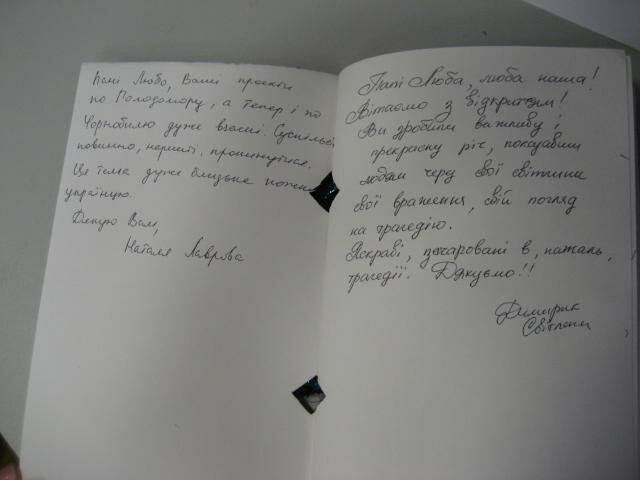 Пані Любо, Ваші проекти
по Голодомору, а тепер і по
Чорнобилю дуже вчасні. Суспільс
повинно, нарешті, прокинутися.
Ця тема дуже близька кожн
українцю.
Дякую Вам,
Наталя Лаврова
Пані Люба, люба наша!
Вітаємо з відкриттям!
Ви зробили важливу і
прекрасну річ, показавши
людям через свої світлини
свої враження, свій погляд
на трагедію.
Яскраві, зачаровані в, нажаль,
трагедії. Дякуємо!!
Світлана